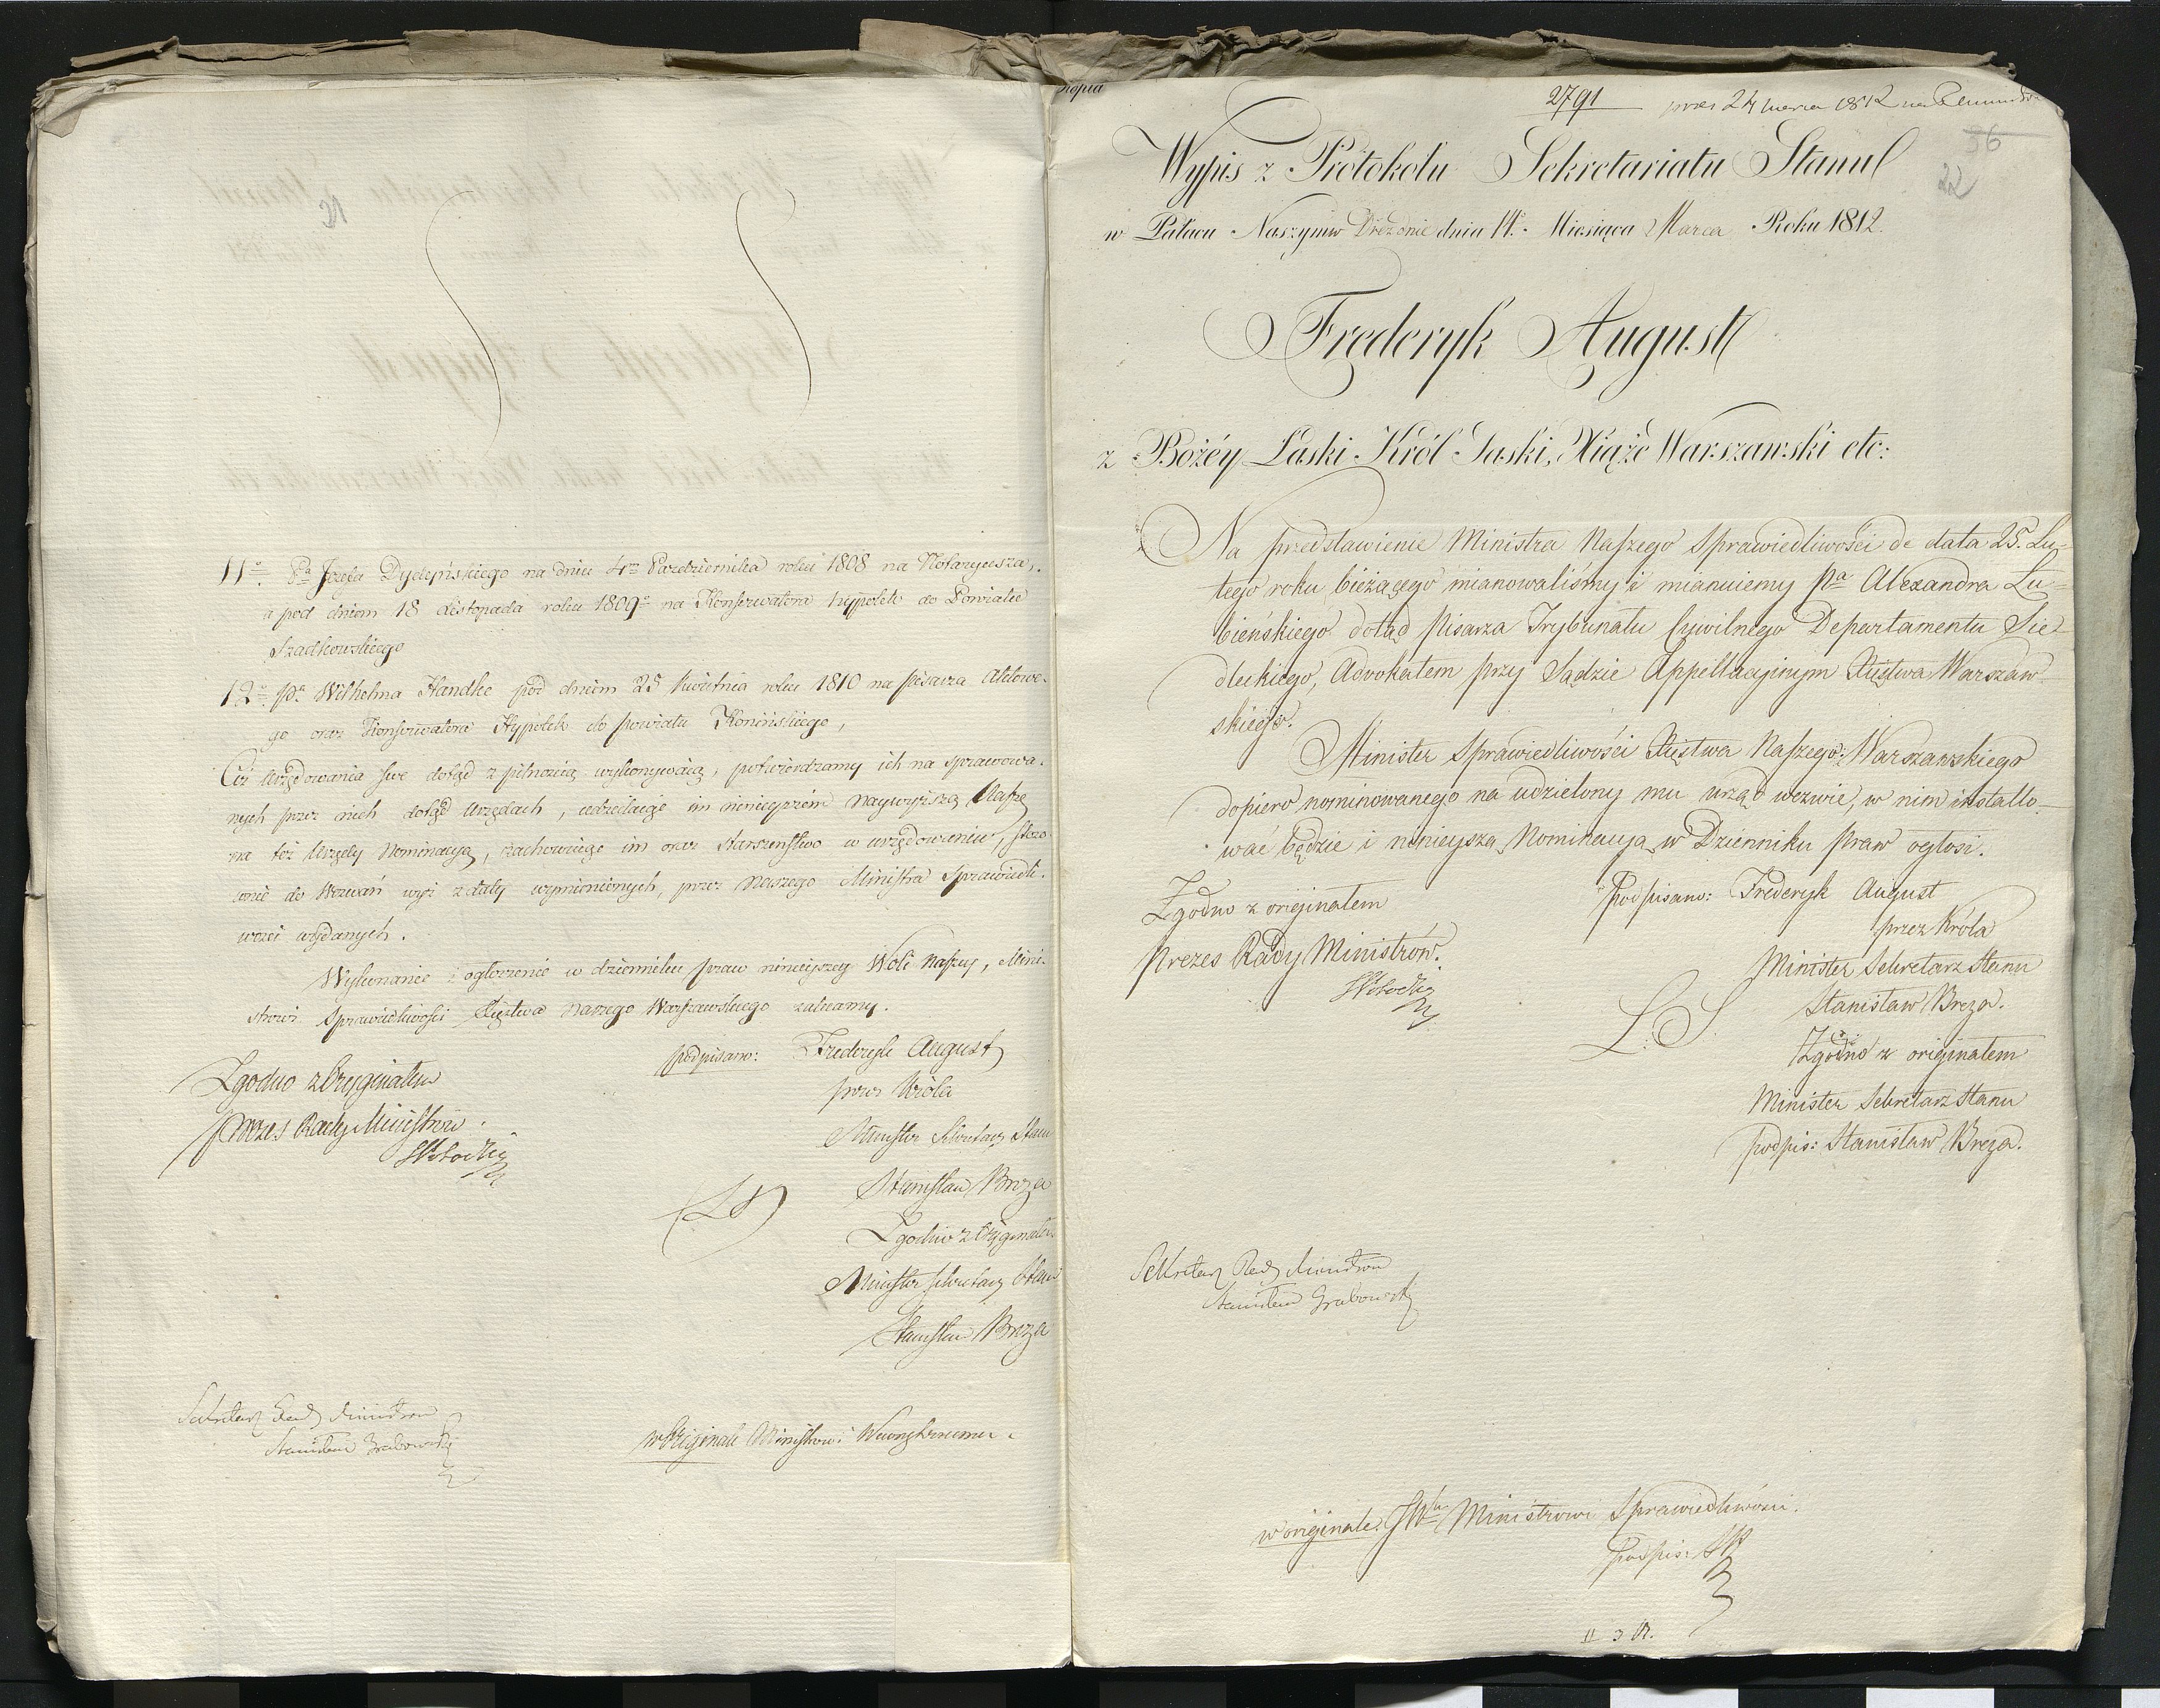 21
11º. Pª Jozefa Dydyńskiego na dniu 4ᵐ Pazdziernika roku 1808 na Notaryusza,
a pod dniem 18 Listopada roku 1809º na Konserwatora hypotek do Powiatu
Szadkowskiego
12º Pª Wilhelma Handke pod dniem 25 kwietnia roku 1810 na pisarza Aktowe-
go oraz Konserwatora Hypotek do powiatu Konińskiego,
Ciż urzędowania swe dotąd z pilnością wykonywaią, potwierdzamy ich na sprawowa-
nych przez nich dotąd urzędach, udzielaiąc im ninieyszem naywyższą Naszę
na też Urzędy Nominacyą, zachowuiąc im oraz starszeństwo w urzędowaniu, stoso-
wnie do Wezwań wyż z daty wymienionych, przez Naszego Ministra Sprawiedli-
wości wydanych.
Wykonanie i ogłoszenie w dzienniku praw ninieyszey Woli Naszey, Mini-
strowi Sprawiedliwości Xięstwa Naszego Warszawskiego zalecamy.
podpisano: Frederyk August
Zgodno z Oryginałem
przez Króla
Prezes Rady Ministrów.
Minister Sekretarz Stanu
(LS)
Stanisław Breza
Zgodno z Oryginałem
Minister Sekretarz Stanu
Stanisław Breza
Sekretarz Rady Ministrow
Stanisław Grabowski
w Originale Ministrowi Wewnętrznemu.
Kopia
2791 prez 24 marca 1812
36
22
Wypis z Protokołu Sekretariatu Stanu
w Pałacu Naszym w Dreźnie dnia 14º. Miesiąca Marca Roku 1812.
Frederyk August
z Bożéy Łaski Król Saski, Xiążę Warszawski etc:
Na przedstawienie Ministra Naszego Sprawiedliwości de data 25. Lu-
tego roku bieżącego mianowaliśmy i mianuiemy Pª Alexandra Łu-
bieńskiego dotąd Pisarza Trybunału Cywilnego Departamentu Sie-
dleckiego, Adwokatem przy Sądzie Appellacyinym Xięstwa Warszaw-
skiego.
Minister Sprawiedliwości Xięstwa Naszego Warszawskiego
dopiero nominowanego na udzielony mu urząd wezwie, w nim installo-
wać będzie i ninieyszą Nominacyą w Dzienniku Praw ogłosi.
Zgodno z originałem
Podpisano: Frederyk August
przez Króla
Prezes Rady Ministrów.
Minister Sekretarz Stanu
L.S.
Stanisław Breza.
Zgodno z originałem
Minister Sekretarz Stanu
podpis: Stanisław Breza.
Sekretarz Rady Ministrow
Stanisław Grabowski
w originale. JWmu Ministrowi Sprawiedliwości.
podpis: